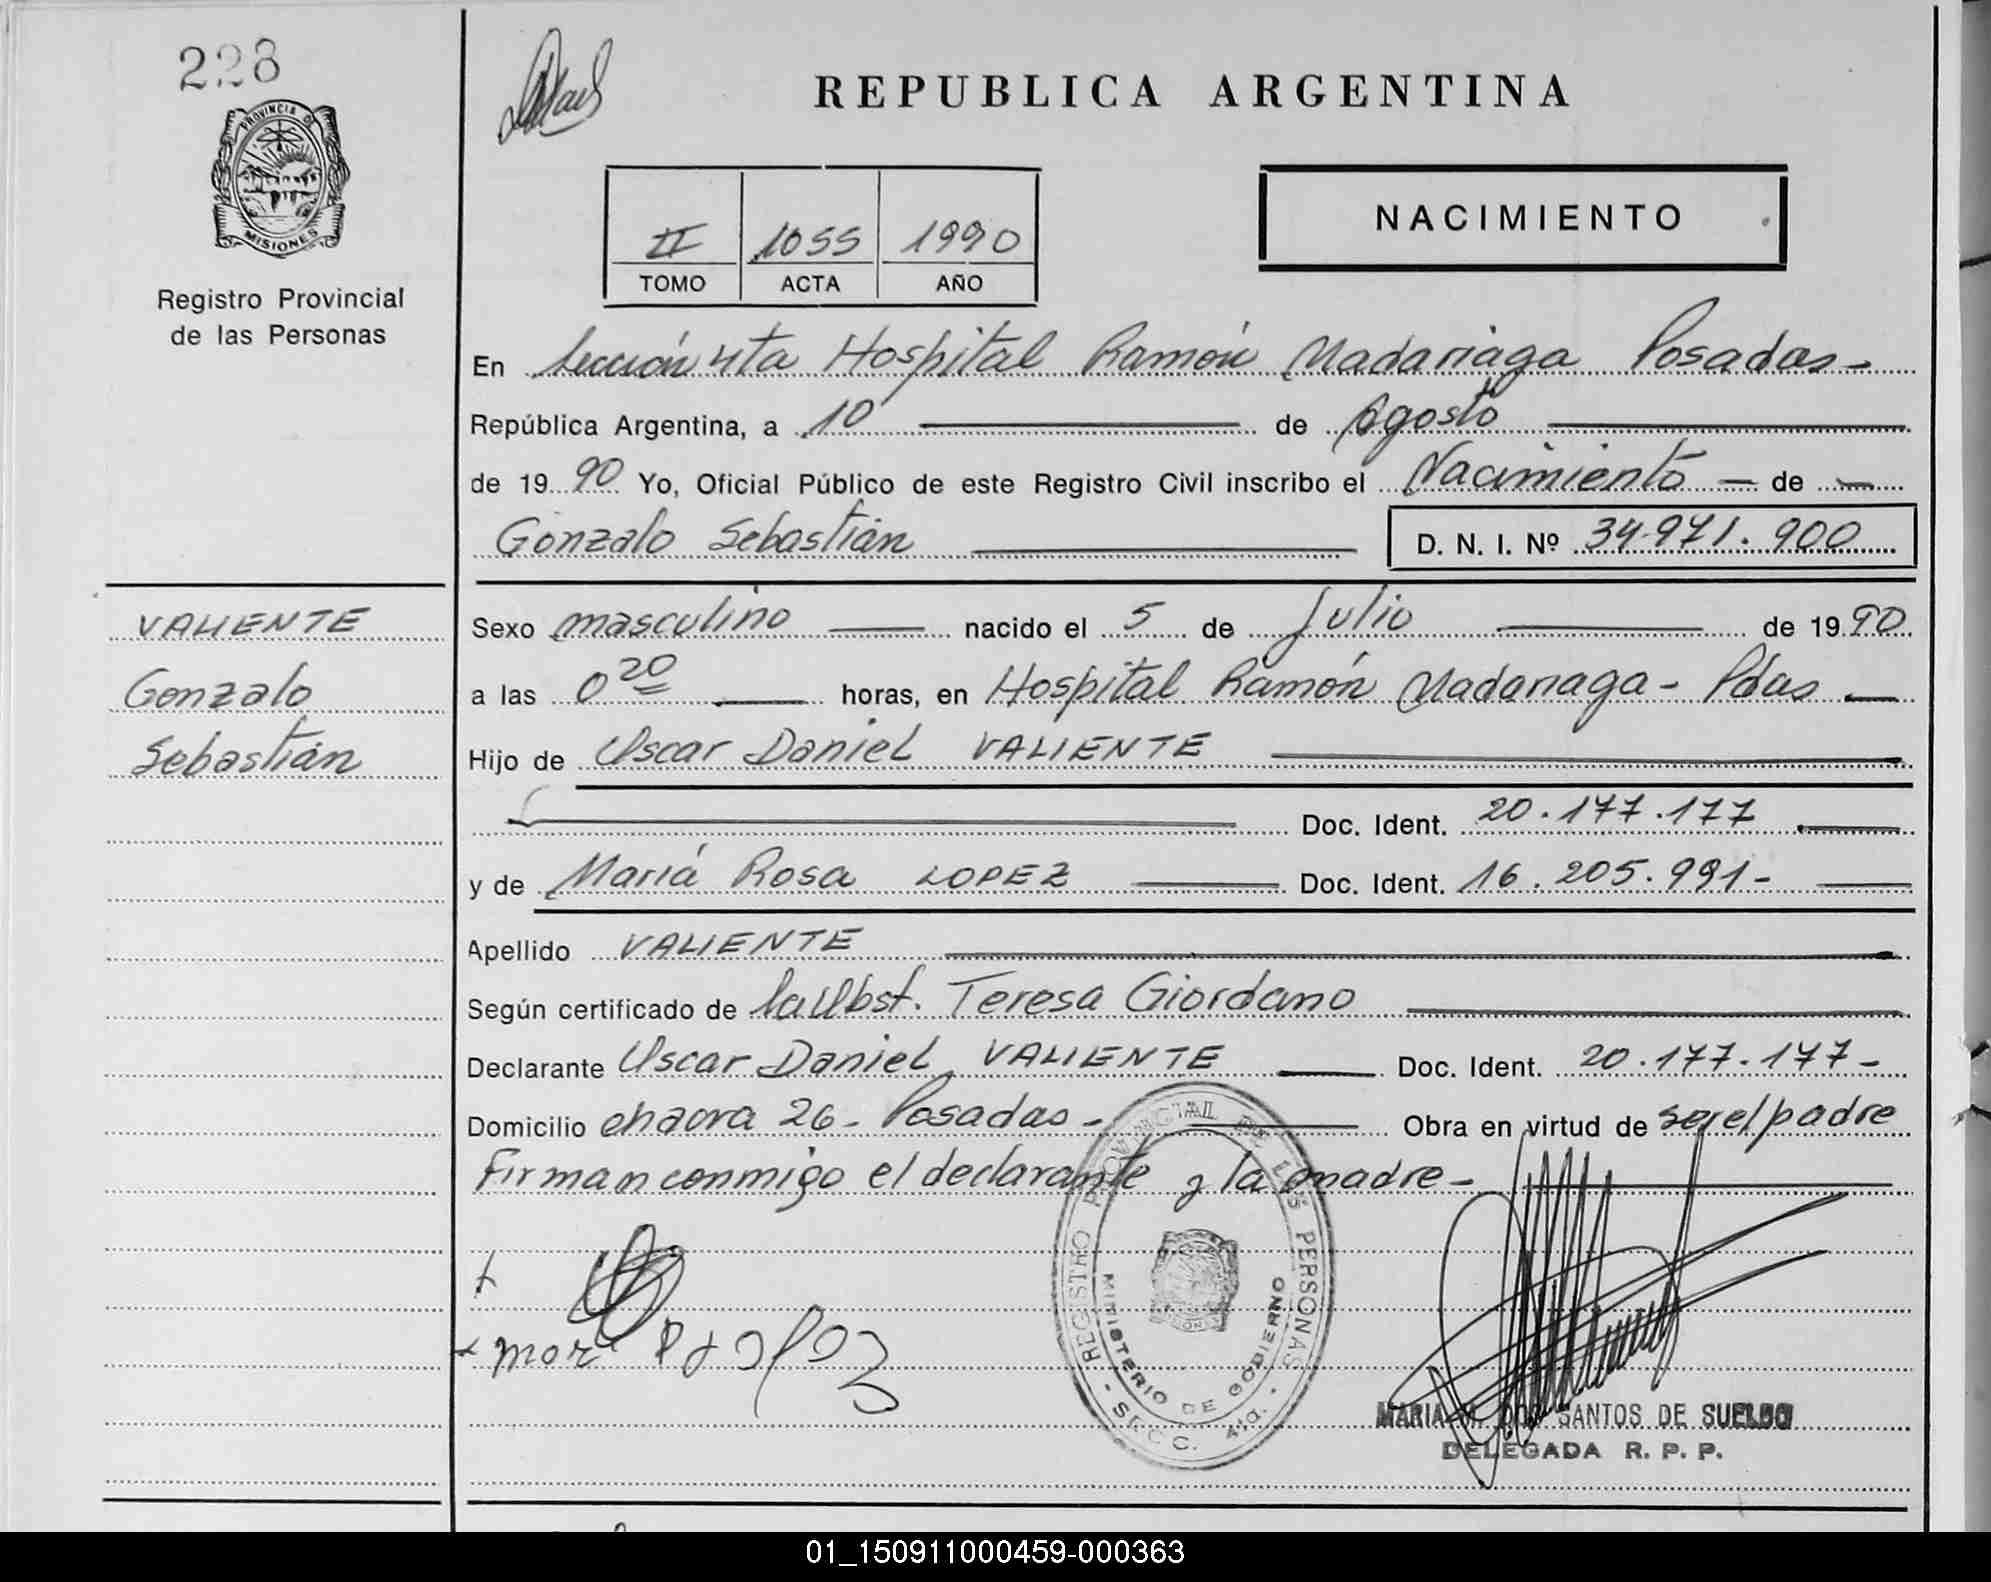 228
PROVINCIA DE
MISIONES
Registro Provincial
de las Personas
REPUBLICA ARGENTINA
II 1055 1990
TOMO ACTA AÑO
NACIMIENTO
En Sección 4ta Hospital Ramón Madariaga Posadas-
República Argentina, a 10 de Agosto
de 1990 Yo, Oficial Público de este Registro Civil inscribo el Nacimiento — de —
Gonzalo Sebastián D. N. I. Nº 34.971.900
VALIENTE
Gonzalo
Sebastián
Sexo masculino nacido el 5 de Julio de 1990
a las 0 20 horas, en Hospital Ramón Madariaga - Pdas
Hijo de Oscar Daniel VALIENTE
Doc. Ident. 20.177.177
y de María Rosa LOPEZ Doc. Ident. 16.205.991-
Apellido VALIENTE
Según certificado de la Obst. Teresa Giordano
Declarante Oscar Daniel VALIENTE Doc. Ident. 20.177.177-
Domicilio chacra 26- Posadas- Obra en virtud de ser el padre
Firman conmigo el declarante y la madre-
REGISTRO PROVINCIAL DE LAS PERSONAS
MINISTERIO DE GOBIERNO
- SECC. 4ta. -
MARIA M. DOS SANTOS DE SUELDO
DELEGADA R. P. P.
01_150911000459-000363